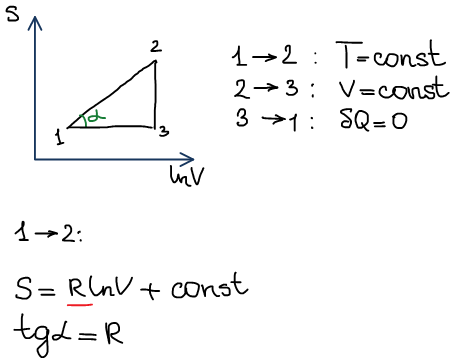 S
2
α
1
3
lnV
1 → 2 : T = const
2 → 3 : V = const
3 → 1 : δQ = 0
1 → 2:
S = R lnV + const
tgα = R